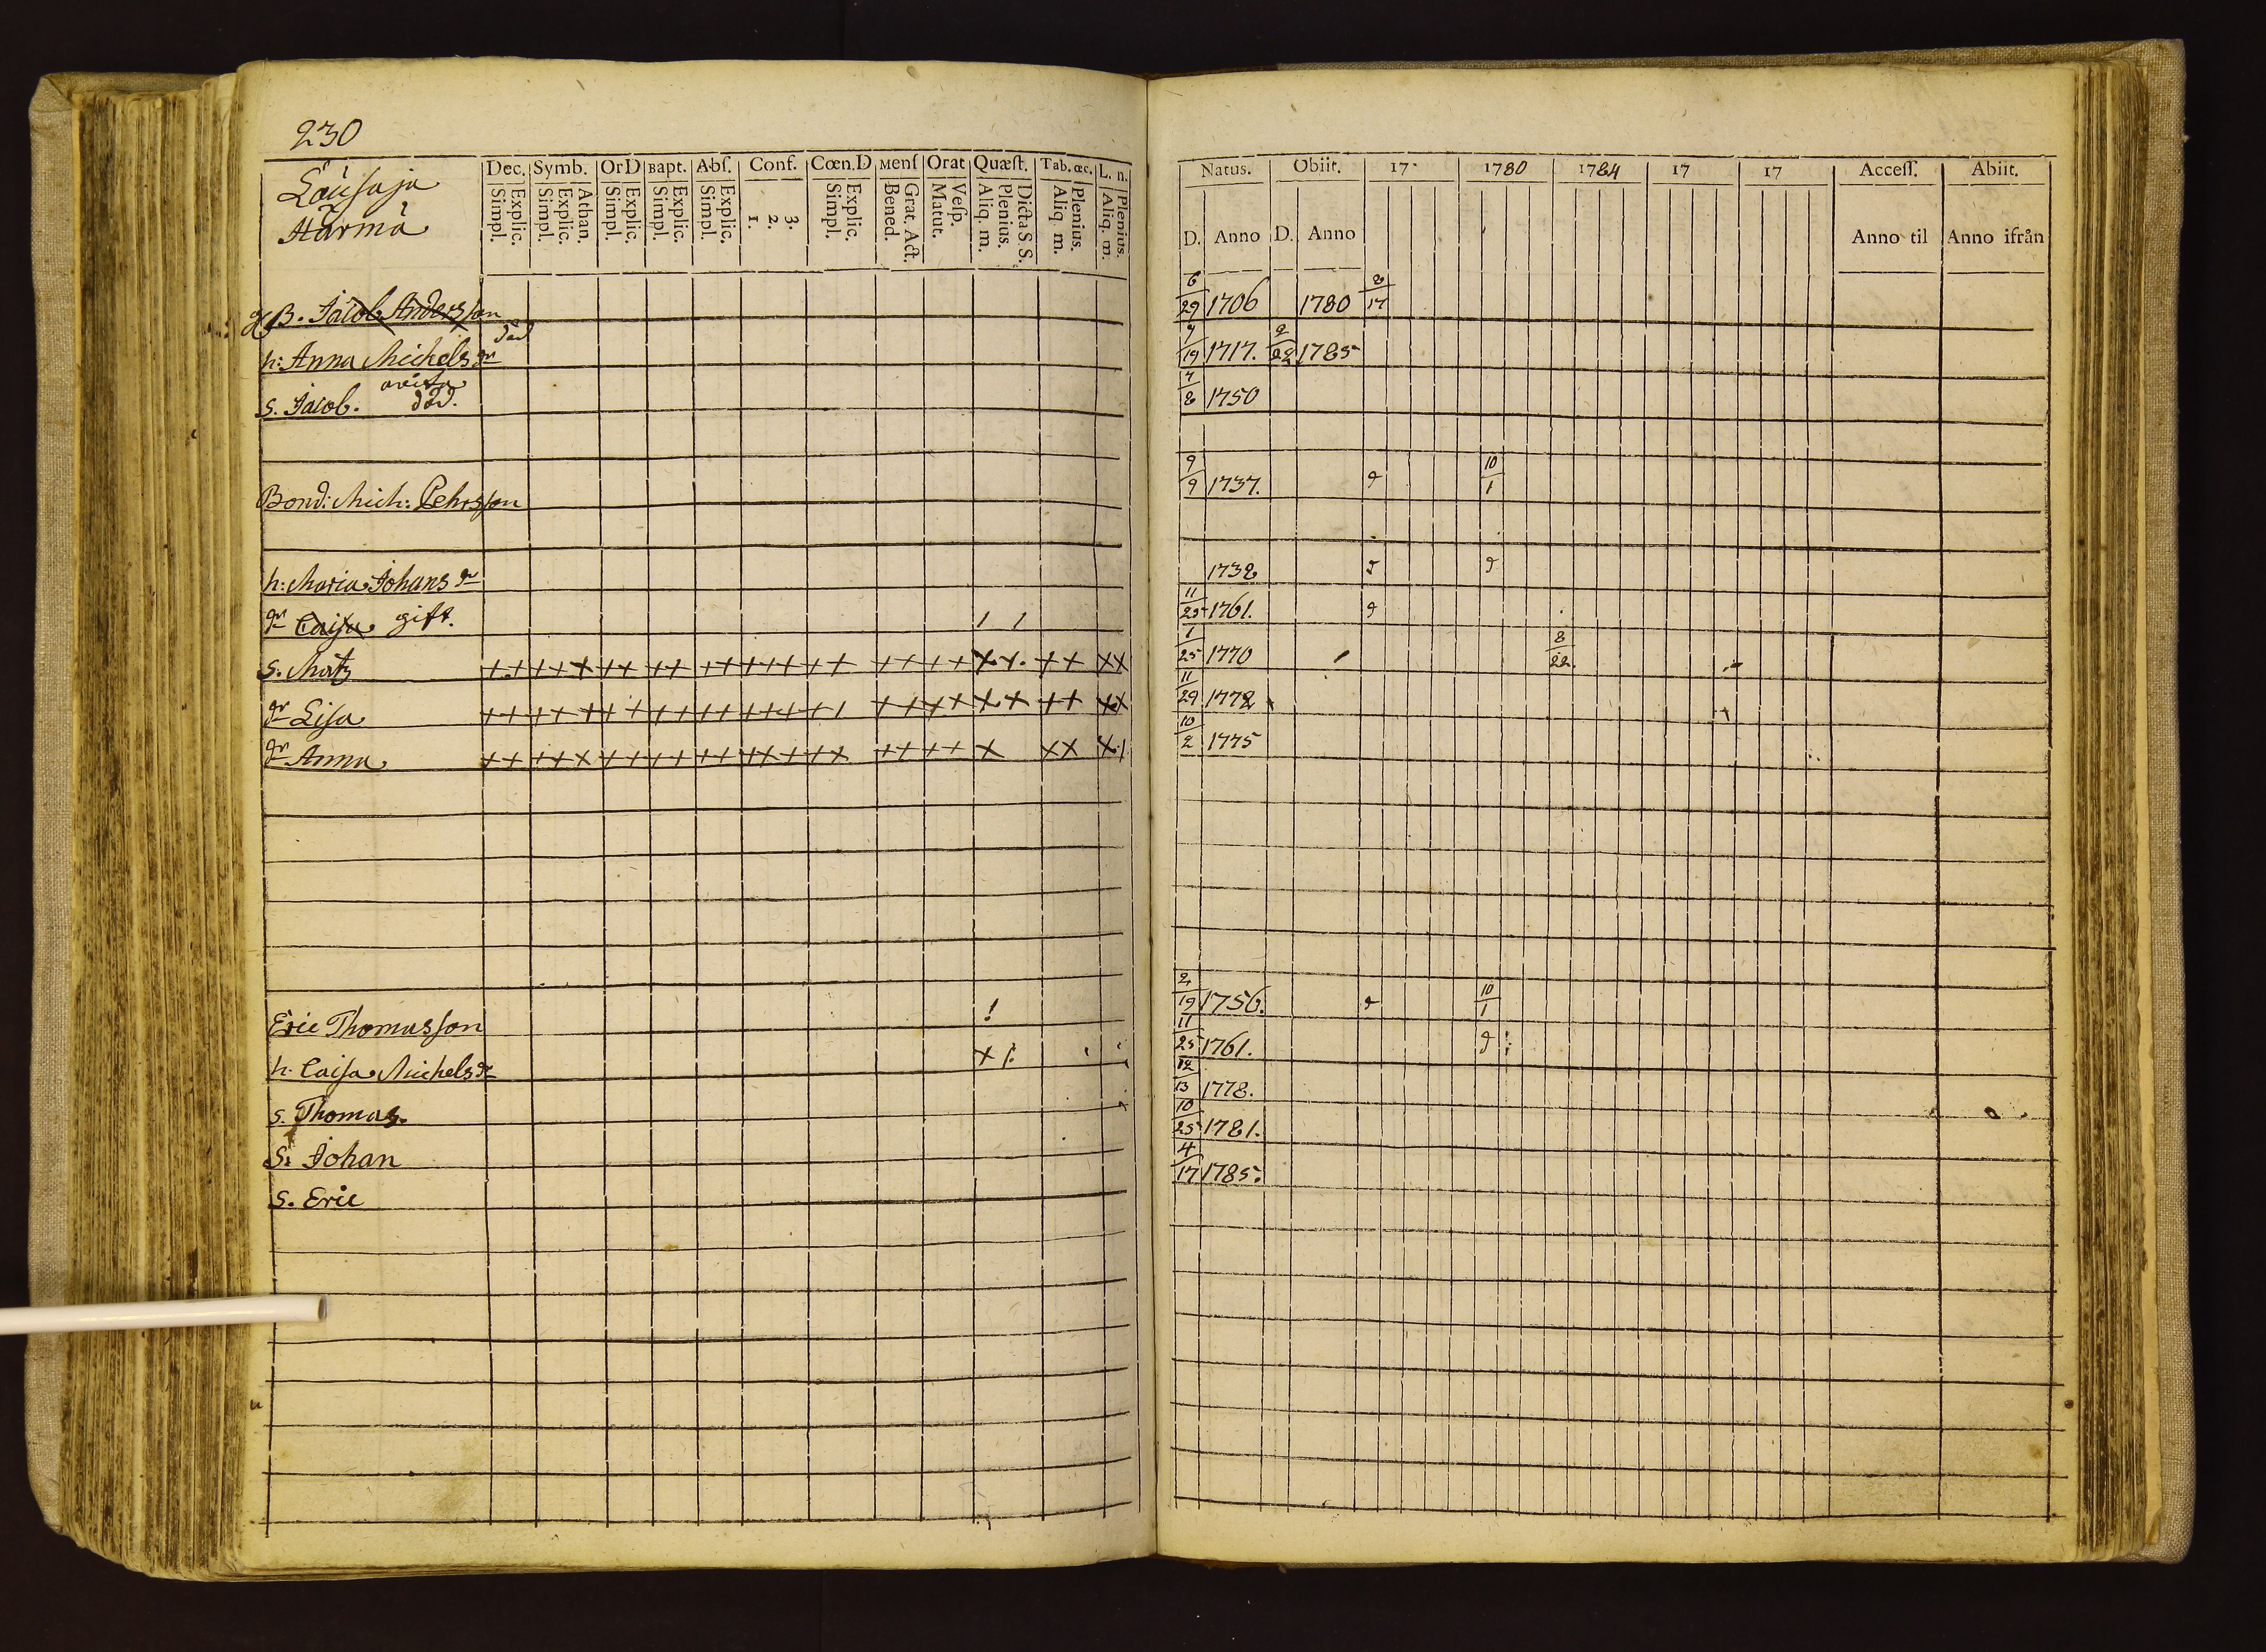 230
Loüsaja
Härmä
Dec. Symb. OrD Bapt. Abſ. Conf. Cœn.D Menſ Orat Quæſt. Tab.œc. L. n.
Simpl. Explic. Simpl. Explic. Athan. Simpl. Explic. Simpl. Explic. Simpl. Explic. 1. 2. 3. Simpl. Explic. Bened. Grat. Act. Matut. Veſp. Aliq. m. Plenius. Dicta S. S. Aliq. m. Plenius. Aliq. m. Plenius.
Natus. Obiit. 17 1780 1784 17 17 Acceſſ. Abiit.
D. Anno D. Anno Anno til Anno ifrån
B. Jacob Andersson 6/29 1706 1780 8/17
död
h: Anna Michels dr 7/19 1717. 1785
s. Jacob. död. 7/8 1750
Bond: Mich: Pehrsson 9/9 1737. 10/1
h: Maria Johans dr 1738
dr Caisa gift. 11/25 1761.
s. Matz ++ +++ ++ ++ ++ +++ ++ ++ ++ ++ ++ ++ 1/25 1770 8/22.
dr Lisa ++ +++ ++ ++ ++ +++ +1 ++ ++ ++ ++ ++ 11/29 1772
dr Anna ++ +++ ++ ++ ++ +++ ++ ++ ++ + ++ +1 10/2 1775
Eric Thomasson 2/19 1756. 10/1
h. Caisa Michels dr 11/25 1761.
s. Thomas. 12/13 1778.
s: Johan 10/25 1781.
s. Eric 4/17 1785.